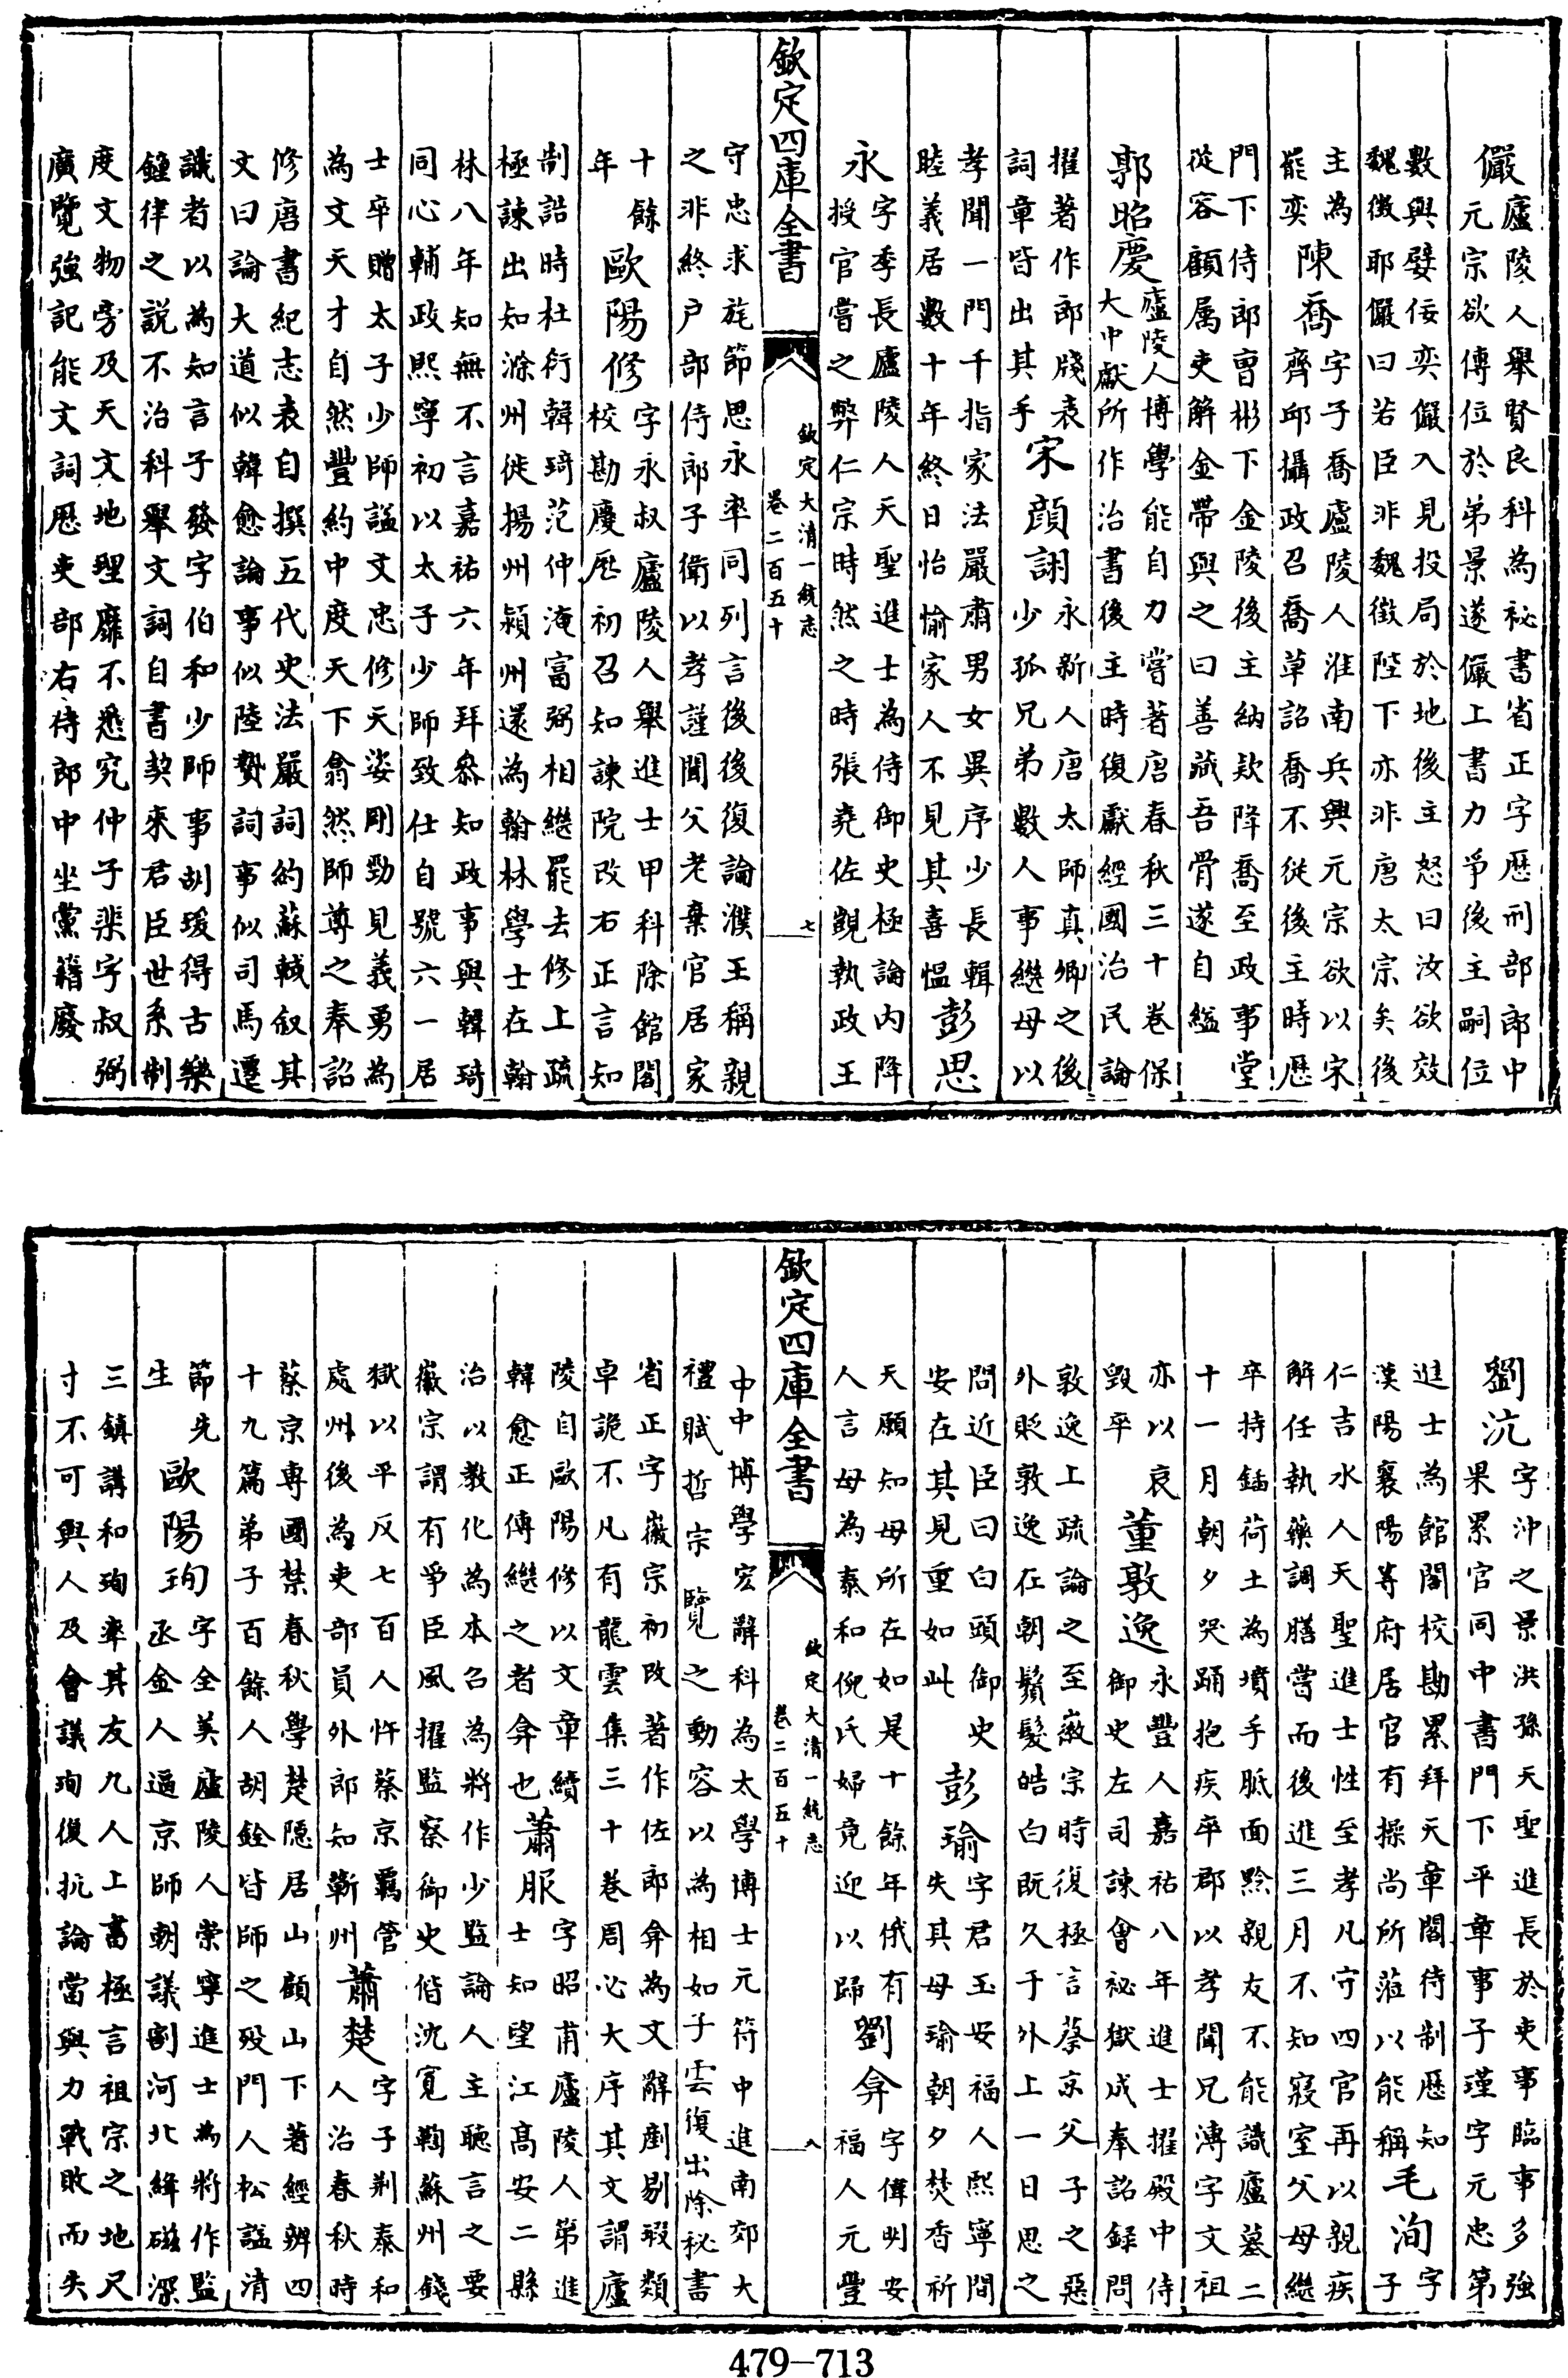 儼
廬陵人舉賢良科為祕書省正字歴刑部郎中
元宗欲傳位於弟景遂儼上書力爭後主嗣位
數與嬖佞奕儼入見投局於地後主怒曰汝欲效
魏徵耶儼曰若臣非魏徵陛下亦非唐太宗矣後
主為
罷奕
陳喬
字子喬廬陵人淮南兵興元宗欲以宋
齊邱攝政召喬草詔喬不從後主時歴
門下侍郎曹彬下金陵後主納欵降喬至政事堂
從容顧属吏解金帶與之曰善藏吾骨遂自縊
郭昭慶
廬陵人博學能自力嘗著唐春秋三十卷保
大中獻所作治書後主時復獻經國治民論
擢著作郎牋表
詞章皆出其手
宋顔詡
永新人唐太師真卿之後
少孤兄弟數人事繼母以
孝聞一門千指家法嚴肅男女異序少長輯
睦義居數十年終日怡愉家人不見其喜慍
彭思
永
字季長廬陵人天聖進士為侍御史極論内降
授官嘗之弊仁宗時然之時張堯佐覬執政王
欽定四庫全書
欽定大清一統志
卷二百五十
七
守忠求旄節思永率同列言後後復論濮王稱親
之非終户部侍郎子衛以孝謹聞父老棄官居家
十餘
年
歐陽修
字永叔廬陵人舉進士甲科除館閣
校勘慶歴初召知諫院改右正言知
制誥時杜衍韓琦范仲淹富弼相繼罷去修上疏
極諫出知滁州徙揚州潁州還為翰林學士在翰
林八年知無不言嘉祐六年拜叅知政事與韓琦
同心輔政熙寧初以太子少師致仕自號六一居
士卒贈太子少師諡文忠修天姿剛勁見義勇為
為文天才自然豐約中度天下翕然師尊之奉詔
修唐書紀志表自撰五代史法嚴詞約蘇軾叙其
文曰論大道似韓愈論事似陸贄詞事似司馬遷
識者以為知言子發字伯和少師事胡瑗得古樂
鐘律之説不治科舉文詞自書契來君臣世系制
度文物旁及天文地理靡不悉究仲子棐字叔弼
廣覽強記能文詞歴吏部右侍郎中坐黨籍廢
劉沆
字沖之景洪孫天聖進長於吏事臨事多強
果累官同中書門下平章事子瑾字元忠第
進士為館閣校勘累拜天章閣待制歴知
漢陽襄陽等府居官有操尚所蒞以能稱
毛洵
字
子
仁吉水人天聖進士性至孝凡守四官再以親疾
解任執藥調膳嘗而後進三月不知寢室父母繼
卒持鍤荷土為墳手胝面黔親友不能識廬墓二
十一月朝夕哭踊抱疾卒郡以孝聞兄溥字文祖
亦以哀
毀卒
董敦逸
永豐人嘉祐八年進士擢殿中侍
御史左司諫會祕獄成奉詔録問
敦逸上疏論之至徽宗時復極言蔡京父子之惡
外貶敦逸在朝鬚髮皓白既久于外上一日思之
問近臣曰白頭御史
安在其見重如此
彭瑜
字君玉安福人熙寧間
失其母瑜朝夕焚香祈
天願知母所在如是十餘年俄有
人言母為泰和倪氏婦竟迎以歸
劉弇
字偉明安
福人元豐
欽定四庫全書
欽定大清一統志
卷二百五十
八
中中博學宏辭科為太學博士元符中進南郊大
禮賦哲宗覽之動容以為相如子雲復出除秘書
省正字徽宗初改著作佐郎弇為文辭剷剔瑕纇
卓詭不凡有龍雲集三十卷周必大序其文謂廬
陵自歐陽修以文章續
韓愈正傳繼之者弇也
蕭服
字昭甫廬陵人第進
士知望江高安二縣
治以教化為本召為將作少監論人主聽言之要
徽宗謂有爭臣風擢監察御史偕沈寛鞫蘇州錢
獄以平反七百人忤蔡京羈管
處州後為吏部員外郎知蘄州
蕭楚
字子荆泰和
人治春秋時
蔡京專國禁春秋學楚隠居山顧山下著經辨四
十九篇弟子百餘人胡銓皆師之殁門人松諡清
節先
生
歐陽珣
字全美廬陵人崇寧進士為將作監
丞金人逼京師朝議割河北絳磁深
三鎮講和珣率其友九人上書極言祖宗之地尺
寸不可與人及會議珣復抗論當與力戰敗而失
479-713